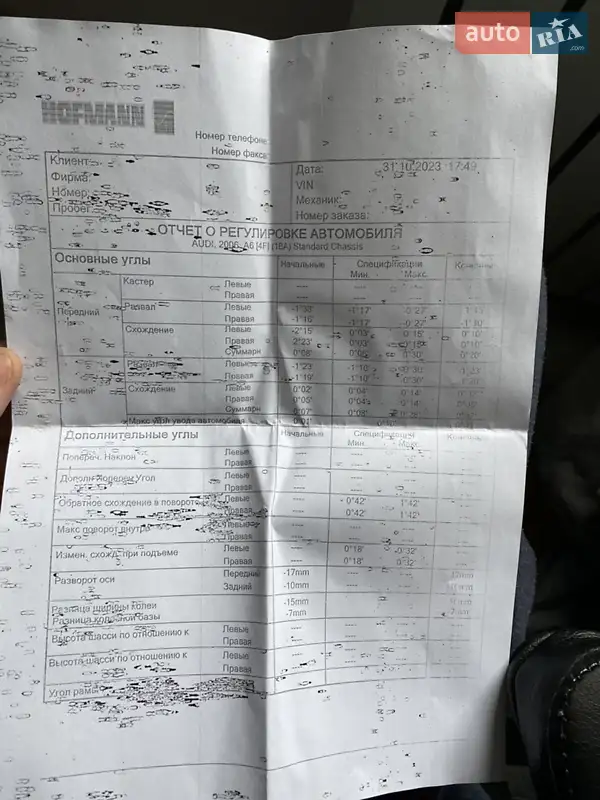 auto RIA .com
HOFMANN
Номер телефона:
Номер факса:
Клиент:
Фирма:
Номер:
Пробег:
Дата: 31.10.2023 17:49
VIN
Механик:
Номер заказа:
ОТЧЕТ О РЕГУЛИРОВКЕ АВТОМОБИЛЯ
AUDI, 2006, A6 [4F] (1BA) Standard Chassis
Основные углы Начальные Спецификации
Мин. Макс.
Передний Кастер Левые ---- ---- ----
Правая ---- ---- ----
Развал Левые -1°17' -0°27'
Правая -1°16' -1°17' -0°27' -1°10'
Схождение Левые -2°15' 0°03' 0°15' 0°10'
Правая 2°23' 0°03' 0°15' 0°10'
Суммарн 0°08' 0°30' 0°20'
Задний Развал Левые -1°23' -1°10' -0°30' -1°23'
Правая -1°19' -1°10'
Схождение Левые 0°02' 0°04' 0°14'
Правая 0°05' 0°04' 0°14'
Суммарн 0°07' 0°08'
Макс угол увода автомобиля
Дополнительные углы Начальные Спецификации
Мин. Макс.
Попереч. Наклон Левые ---- ---- ----
Правая ---- ---- ----
Дополн. Попереч Угол Левые ---- ---- ----
Правая ---- ---- ----
Обратное схождение в повороте Левые ---- 0°42' 1°42'
Правая ---- 0°42' 1°42'
Макс поворот внутрь Левые ---- ---- ----
Правая ---- ---- ----
Измен. схожд. при подъеме Левые ---- 0°18' -0°32'
Правая ---- 0°18' 0°32'
Разворот оси Передний -17mm ---- ---- -17mm
Задний -10mm ---- ----
Разница ширины колеи -15mm ---- ----
Разница колесной базы -7mm ---- ----
Высота шасси по отношению к Левые ---- ---- ----
Правая ---- ---- ----
Высота шасси по отношению к Левые ---- ---- ----
Правая ---- ---- ----
Угол рамы